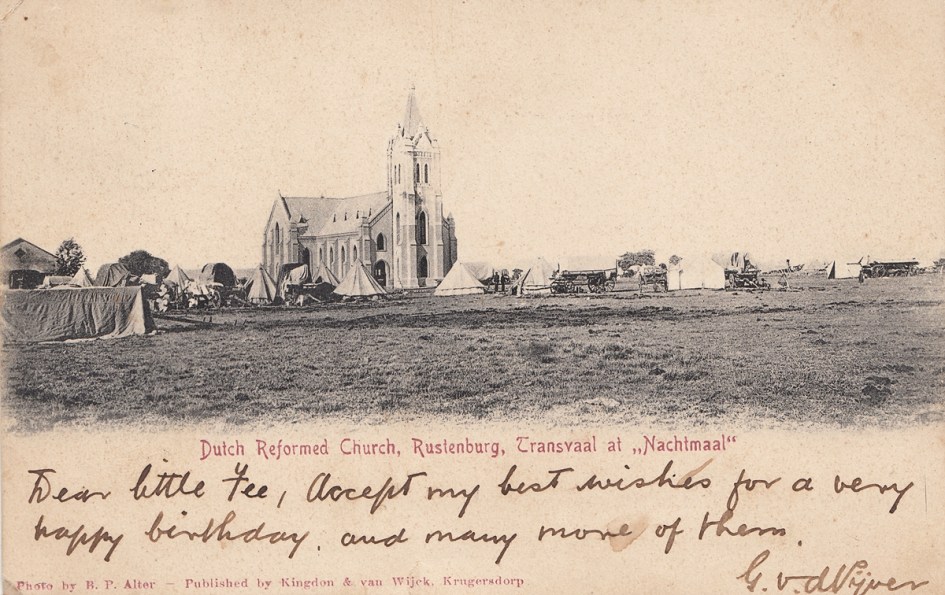 Dutch Reformed Church, Rustenburg, Transvaal at „Nachtmaal“
Dear little Fee, Accept my best wishes for a very
happy birthday, and many more of them.
G. v. d Vijver
Photo by B. P. Alter – Published by Kingdon & van Wijck, Krugersdorp